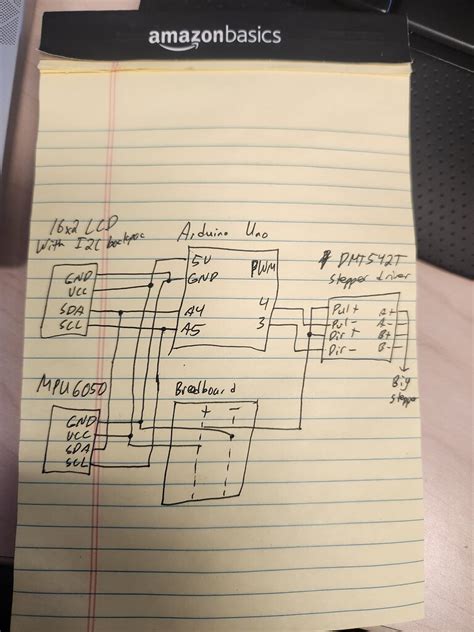 amazonbasics
16x2 LCD
With I2C backpac
Arduino Uno
5V
GND
PWM
A4
A5
4
3
GND
VCC
SDA
SCL
DM542T
stepper driver
Pul+
Pul-
Dir+
Dir-
A+
A-
B+
B-
Big
stepper
MPU6050
GND
VCC
SDA
SCL
Breadboard
+ -